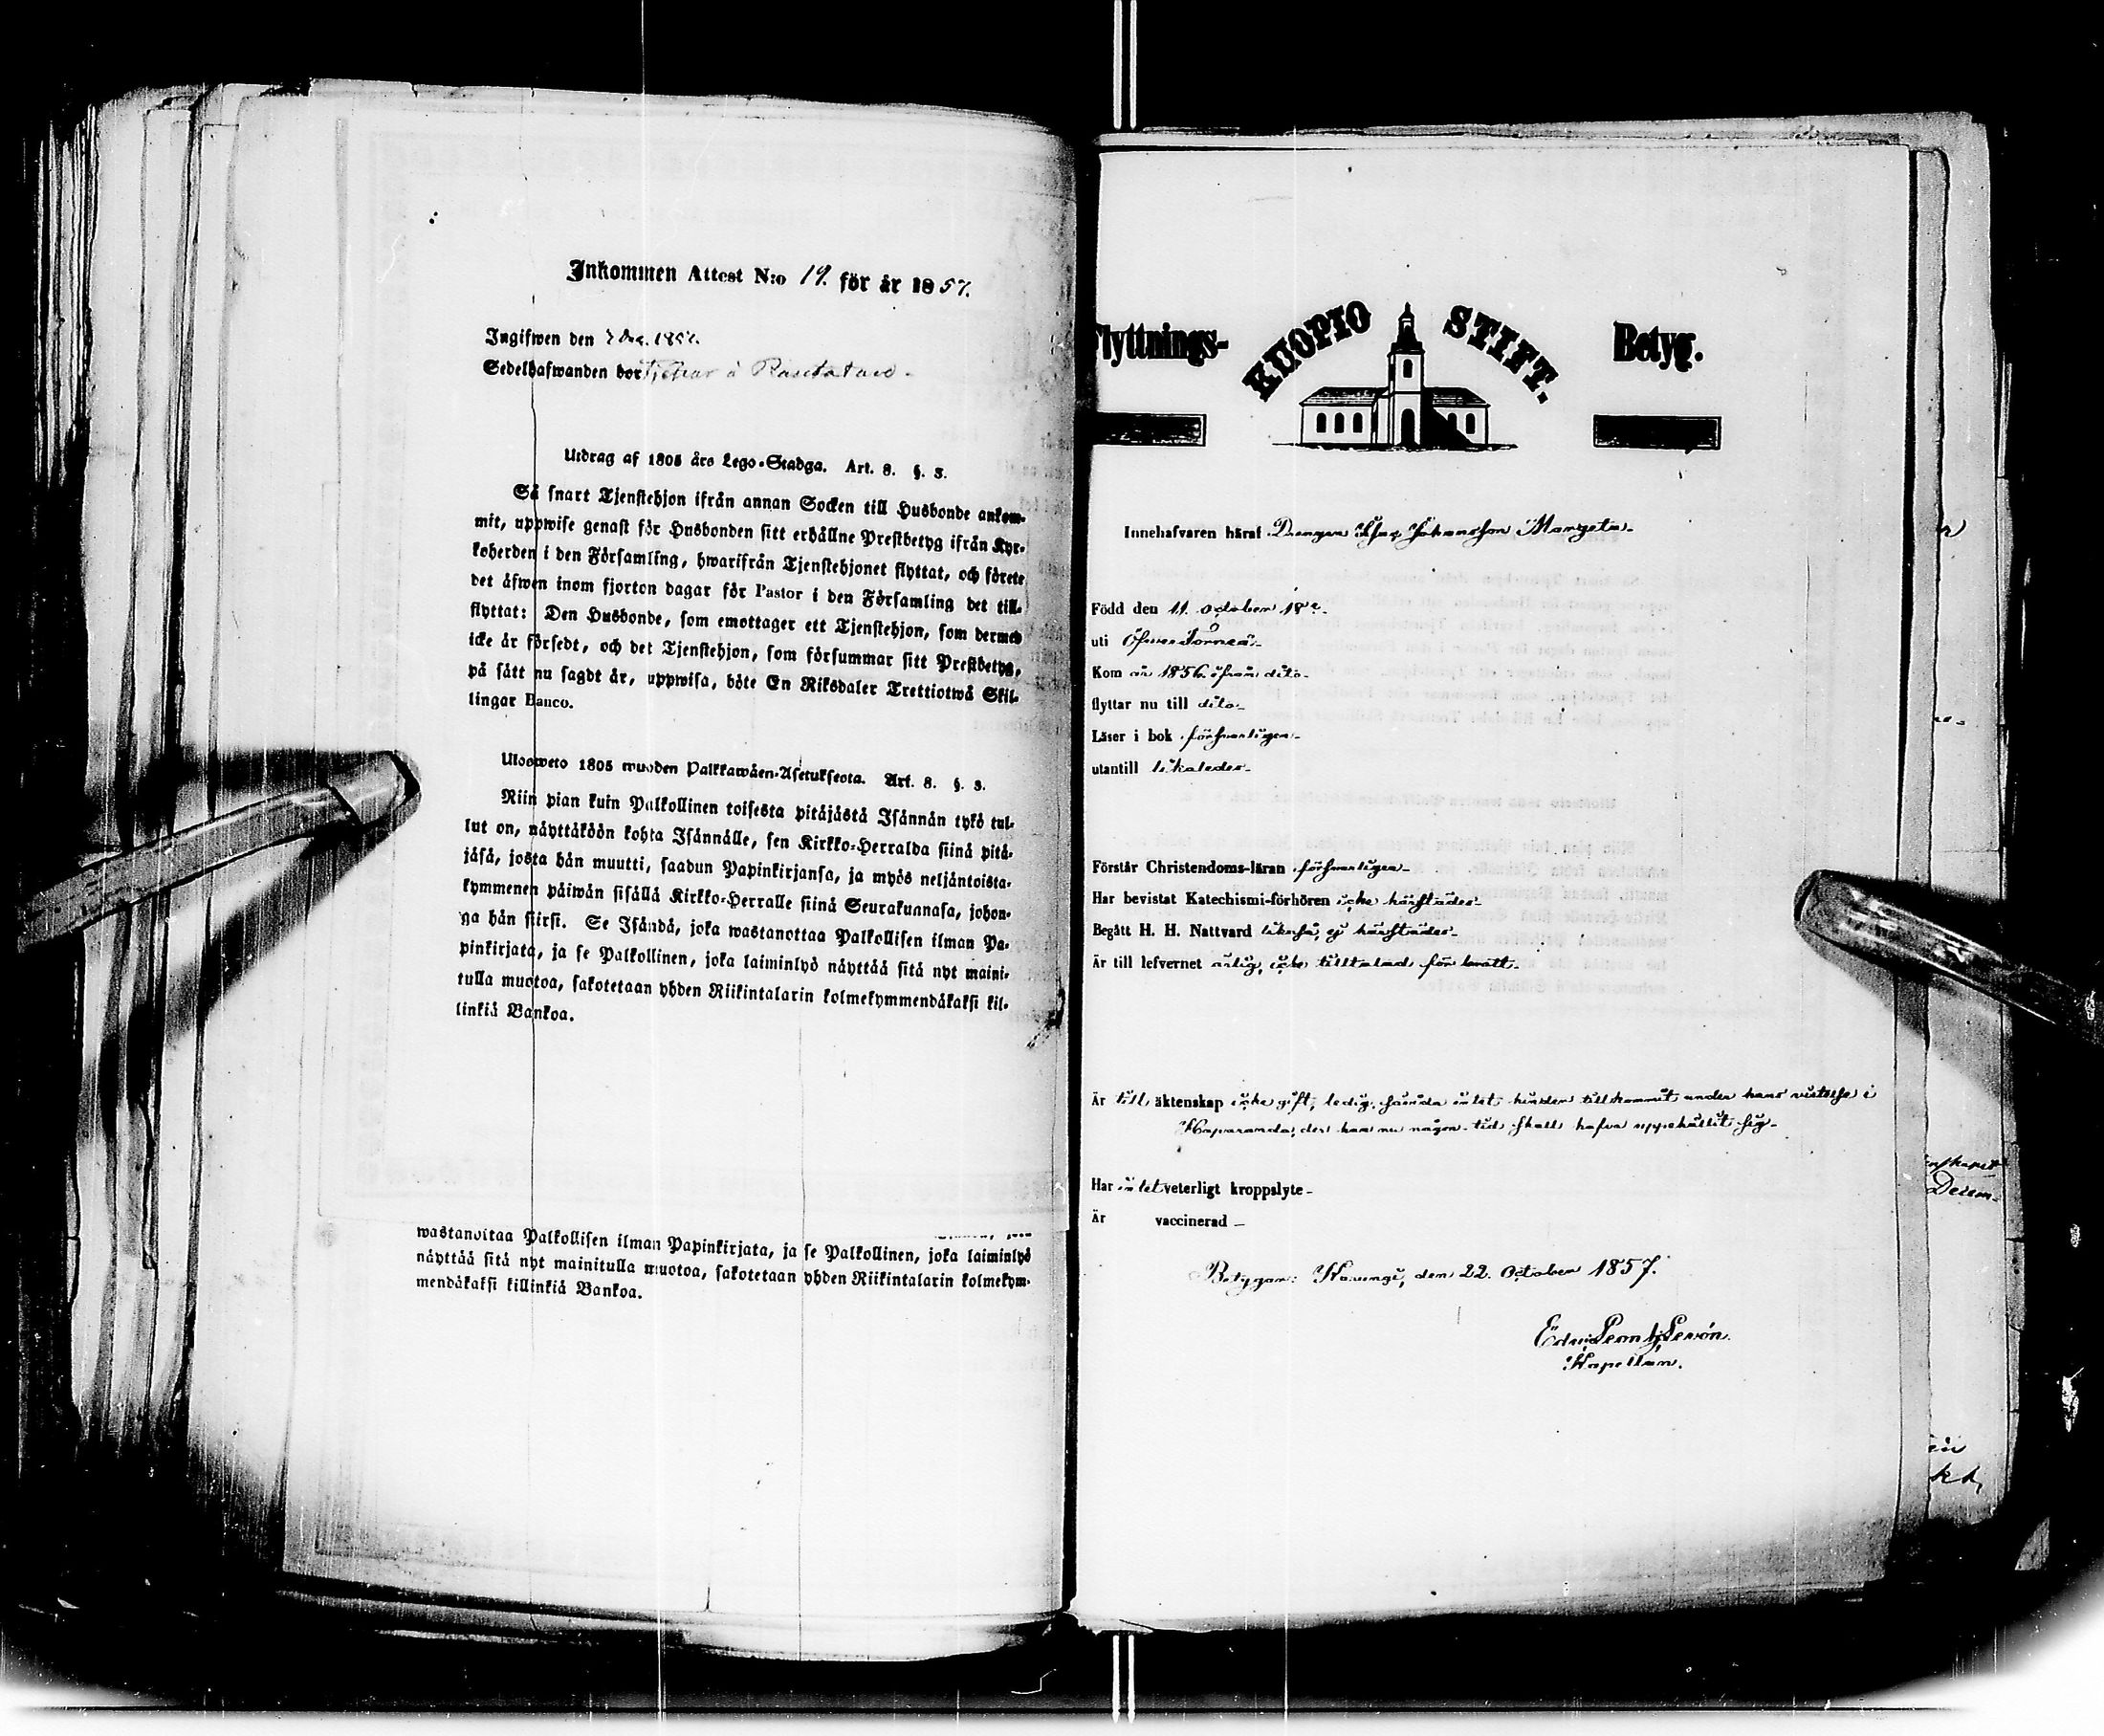 Inkommen Attest N:o 19. för år 1857.
Ingifwen den 7 Dec. 1857.
Sedelhafwanden bor tjenar å
Utdrag af 1805 års Lego-Stadga. Art. 8. §. 3.
Så snart Tjenstehjon ifrån annan Socken till Husbonde ankom-
mit, uppwise genast för Husbonden sitt erhållne Prestbetyg ifrån Kyr-
koherden i den Församling, hwarifrån Tjenstehjonet flyttat, och förete
det äfwen inom fjorton dagar för Pastor i den Församling det till-
flyttat: Den Husbonde, som emottager ett Tjenstehjon, som dermed
icke är försedt, och det Tjenstehjon, som försummar sitt Prestbetyg,
på sätt nu sagdt är, uppwisa, böte En Riksdaler Trettiotwå Skil-
lingar Banco.
Ulosweto 1805 wuoden Palkkawäen-Asetuksesta. Art. 8. §. 3.
Niin pian kuin Palkollinen toisesta pitäjästä Isännän tykö tul-
lut on, näyttäköön kohta Isännälle, sen Kirkko-Herralda siinä pitä-
jäsä, josta hän muutti, saadun Papinkirjansa, ja myös neljäntoista-
kymmenen päiwän sisällä Kirkko-Herralle siinä Seurakunnasa, johon-
ga hän siirsi. Se Isändä, joka wastanottaa Palkollisen ilman Pa-
pinkirjata, ja se Palkollinen, joka laiminlyö näyttää sitä nyt maini-
tulla muotoa, sakotetaan yhden Riikintalarin kolmekymmendäkaksi kil-
linkiä Bankoa.
wastanottaa Palkollisen ilman Papinkirjata, ja se Palkollinen, joka laiminlyö
näyttää sitä nyt mainitulla muotoa, sakotetaan yhden Riikintalarin kolmekym-
mendäkaksi killinkiä Bankoa.
Flyttnings- KUOPIO STIFT. Betyg.
Innehafvaren häraf Drengen Johansson
Född den 11 October
uti Öfver Torneå
Kom år 1856 ifrån dito
flyttar nu till dito
Läser i bok försvarligen
utantill likaledes
Förstår Christendoms-läran försvarligen
Har bevistat Katechismi-förhören icke härstädes
Begått H. H. Nattvard likaså, ej härstädes
Är till lefvernet ärlig, icke tilltalad för brått
Är till äktenskap icke gift, ledig, såvida intet hinder tillkommit under hans vistelse i
Haparanda, der han nu någon tid skall hafva uppehållit sig
Har intet veterligt kroppslyte
Är vaccinerad
Betygar: Karungi, den 22. October 1857.
Kapellan.